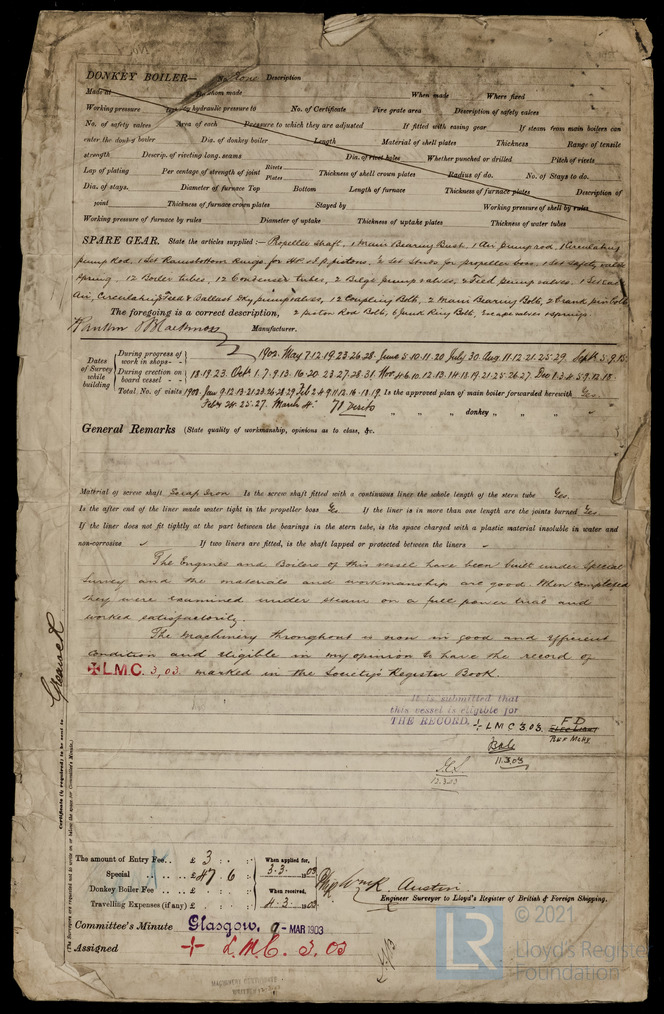 DONKEY BOILER— No. None Description
Made at by whom made When made Where fixed
Working pressure tested by hydraulic pressure to No. of Certificate Fire grate area Description of safety valves
No. of safety valves Area of each Pressure to which they are adjusted If fitted with easing gear If steam from main boilers can
enter the donkey boiler Dia. of donkey boiler Length Material of shell plates Thickness Range of tensile
strength Descrip. of riveting long. seams Dia. of rivet holes Whether punched or drilled Pitch of rivets
Lap of plating Per centage of strength of joint Rivets Plates Thickness of shell crown plates Radius of do. No. of Stays to do.
Dia. of stays. Diameter of furnace Top Bottom Length of furnace Thickness of furnace plates Description of
joint Thickness of furnace crown plates Stayed by Working pressure of shell by rules
Working pressure of furnace by rules Diameter of uptake Thickness of uptake plates Thickness of water tubes
SPARE GEAR. State the articles supplied:— Propeller shaft, 1 Main Bearing Bush, 1 Air pump rod, 1 Circulating
pump Rod, 1 Set Ramsbottom Rings for HP & IP pistons, 2 Set Studs for propeller boss, 1 Set safety valve
spring, 12 Boiler tubes, 12 Condenser tubes, 2 Bilge pump valves, 2 Feed pump valves, 1 Set each
Air, Circulating Feed & Ballast Dky pump valves, 12 Coupling Bolts, 2 Main Bearing Bolts, 2 Crank pin Bolts
The foregoing is a correct description, 2 piston Rod Bolts, 6 Junk Ring Bolts, Escape valves & springs.
Rankin & Blackmore Manufacturer.
Dates of Survey while building
During progress of work in shops - - 1902. May 7.12.19.23.26.28. June 5.10.11.20 July 30. Aug. 11.12.21.25.29. Sept 5.9.15.
During erection on board vessel - - 18.19.23. Oct 1.7.9.13.16.20.23.27.28.31. Nov 4.6.10.12.13.14.18.19.21.25.26.27. Dec 1.3.4.5.9.12.18
Total No. of visits 1903. Jan 9.12.13.21.23.26.28.29 Feb 2.4.9.11.12.16.18.19. Is the approved plan of main boiler forwarded herewith Yes.
Feb 24.25.27. March 4. 78 visits " " " donkey " " "
General Remarks (State quality of workmanship, opinions as to class, &c.
Material of screw shaft Scrap Iron Is the screw shaft fitted with a continuous liner the whole length of the stern tube Yes.
Is the after end of the liner made water tight in the propeller boss Yes If the liner is in more than one length are the joints burned Yes.
If the liner does not fit tightly at the part between the bearings in the stern tube, is the space charged with a plastic material insoluble in water and
non-corrosive ✓ If two liners are fitted, is the shaft lapped or protected between the liners ✓
The Engines and Boilers of this vessel have been built under Special
Survey and the materials and workmanship are good. When completed
they were examined under steam on a full power trial and
worked satisfactorily.
The Machinery throughout is now in good and efficient
condition and eligible in my opinion to have the record of
✠LMC. 3,03 marked in the Society's Register Book.
It is submitted that
this vessel is eligible for
THE RECORD. + LMC 3.03. F D
ELEC LIGHT
11.3.03
12.3.03
Greenock
Certificate (if required) to be sent to
(The Surveyors are requested not to write on or below the space for Committee's Minute.)
The amount of Entry Fee . . £ 3 : : When applied for,
Special . . . . £ 47 . 6 : 3.3. 1903
Donkey Boiler Fee . . £ : : When received,
Travelling Expenses (if any) £ : : 4.3. 1903
Wm R. Austin
Engineer Surveyor to Lloyd's Register of British & Foreign Shipping.
Committee's Minute Glasgow, 9 - MAR 1903
Assigned + L.M.C. 3.03
© 2021
LR
Lloyd's Register
Foundation